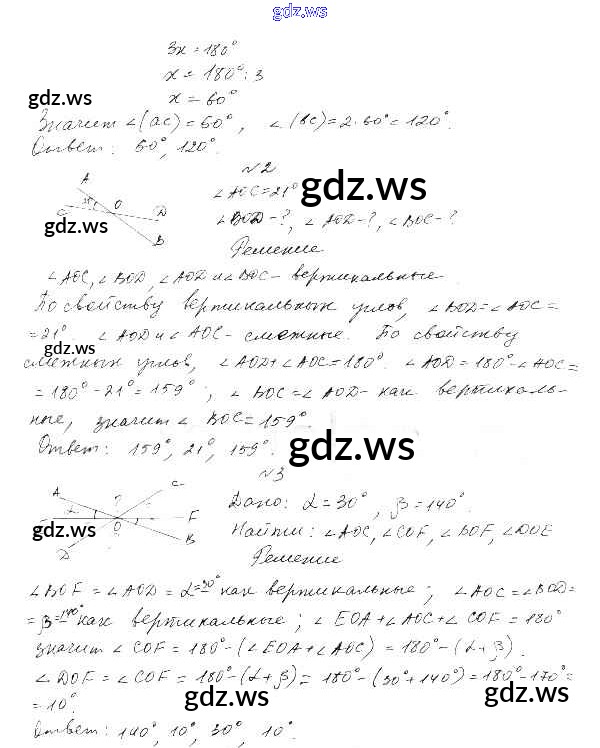 gdz.ws
3x = 180°
x = 180° : 3
x = 60°
gdz.ws
Значит ∠(ac) = 60°, ∠(bc) = 2·60° = 120°.
Ответ: 60°, 120°.
№2
A
C O D
B
∠AOC = 21°
gdz.ws
∠BOD - ?, ∠AOD - ?, ∠BOC - ?
gdz.ws
Решение
∠AOC, ∠BOD, ∠AOD и ∠BOC - вертикальные.
По свойству вертикальных углов, ∠BOD = ∠AOC =
= 21° ∠AOD и ∠AOC - смежные. По свойству
gdz.ws
смежных углов, ∠AOD + ∠AOC = 180°. ∠AOD = 180° - ∠AOC =
= 180° - 21° = 159°; ∠BOC = ∠AOD - как вертикаль-
ные, значит ∠BOC = 159°.
Ответ: 159°, 21°, 159°.
gdz.ws
№3
A C
? O F
D B
Дано: α = 30°, β = 140°.
gdz.ws
Найти: ∠AOC, ∠COF, ∠BOF, ∠DOE
gdz.ws
Решение
∠BOF = ∠AOD = α = 30° как вертикальные; ∠AOC = ∠BOD =
= β = 140° как вертикальные; ∠EOA + ∠AOC + ∠COF = 180°
значит ∠COF = 180° - (∠EOA + ∠AOC) = 180° - (α + β).
∠DOF = ∠COF = 180° - (α + β) = 180° - (30° + 140°) = 180° - 170° =
= 10°.
gdz.ws
gdz.ws
Ответ: 140°, 10°, 30°, 10°.
gdz.ws